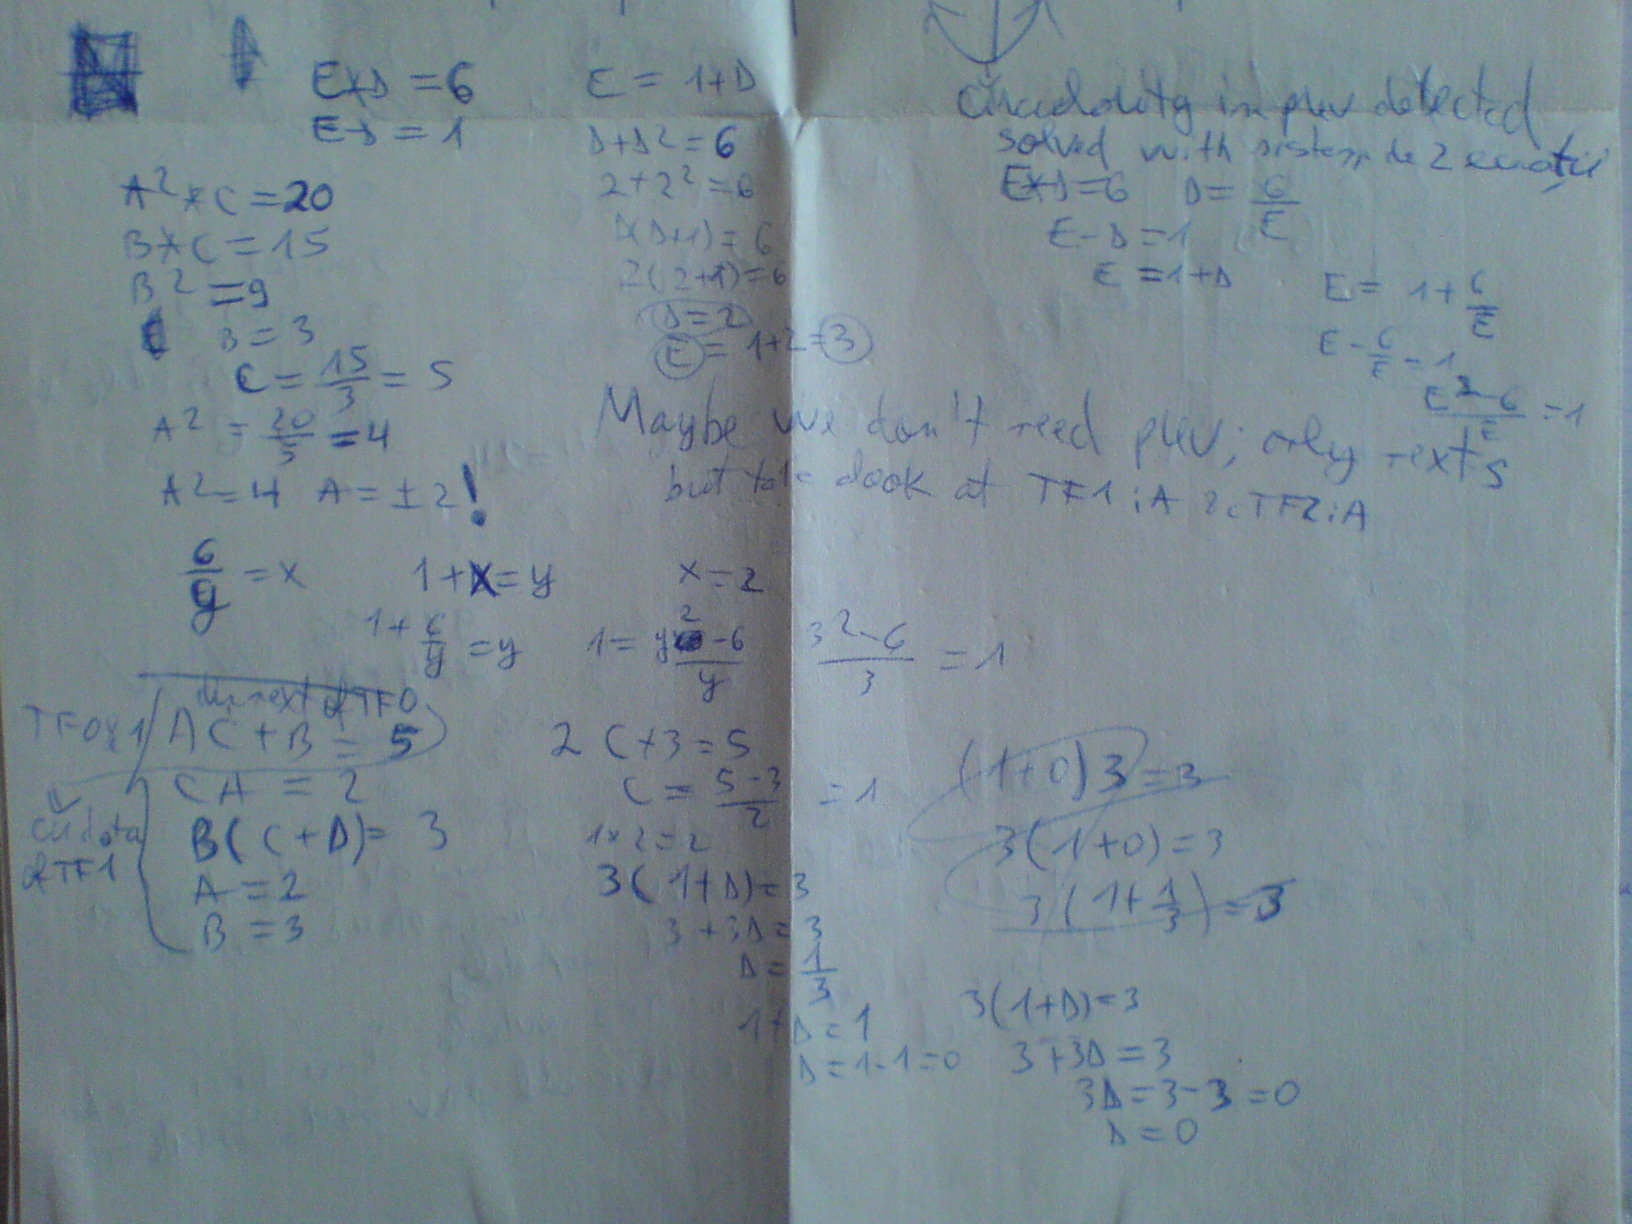 E*D = 6
E-D = 1
A² * C = 20
B * C = 15
B² = 9
B = 3
C = 15/3 = 5
A² = 20/5 = 4
A² = 4 A = ±2!
E = 1+D
D+D² = 6
2+2² = 6
D(D+1) = 6
2(2+1) = 6
D = 2
E = 1+2 = 3
Circularity in prev detected
solved with sistem de 2 ecuații
E*D = 6 D = 6/E
E-D = 1
E = 1+D
E = 1+6/E
E - 6/E = 1
E²-6/E = 1
Maybe we don't need prev; only nexts
but look at TF1:A TF2:A
6/y = x 1+x = y x = 2
1+6/y = y 1 = y²-6/y 3²-6/3 = 1
next TF0
TF0 1 AC + B = 5
CA = 2
B(C+D) = 3
A = 2
B = 3
cu data
TF1
2C+3 = 5
C = 5-3/2 = 1
1*2 = 2
3(1+D) = 3
3+3D = 3
D = 1/3
1+D = 1
D = 1-1 = 0
(1+0)3 = 3
3(1+0) = 3
3(1+1/3) = 3
3(1+D) = 3
3+3D = 3
3D = 3-3 = 0
D = 0